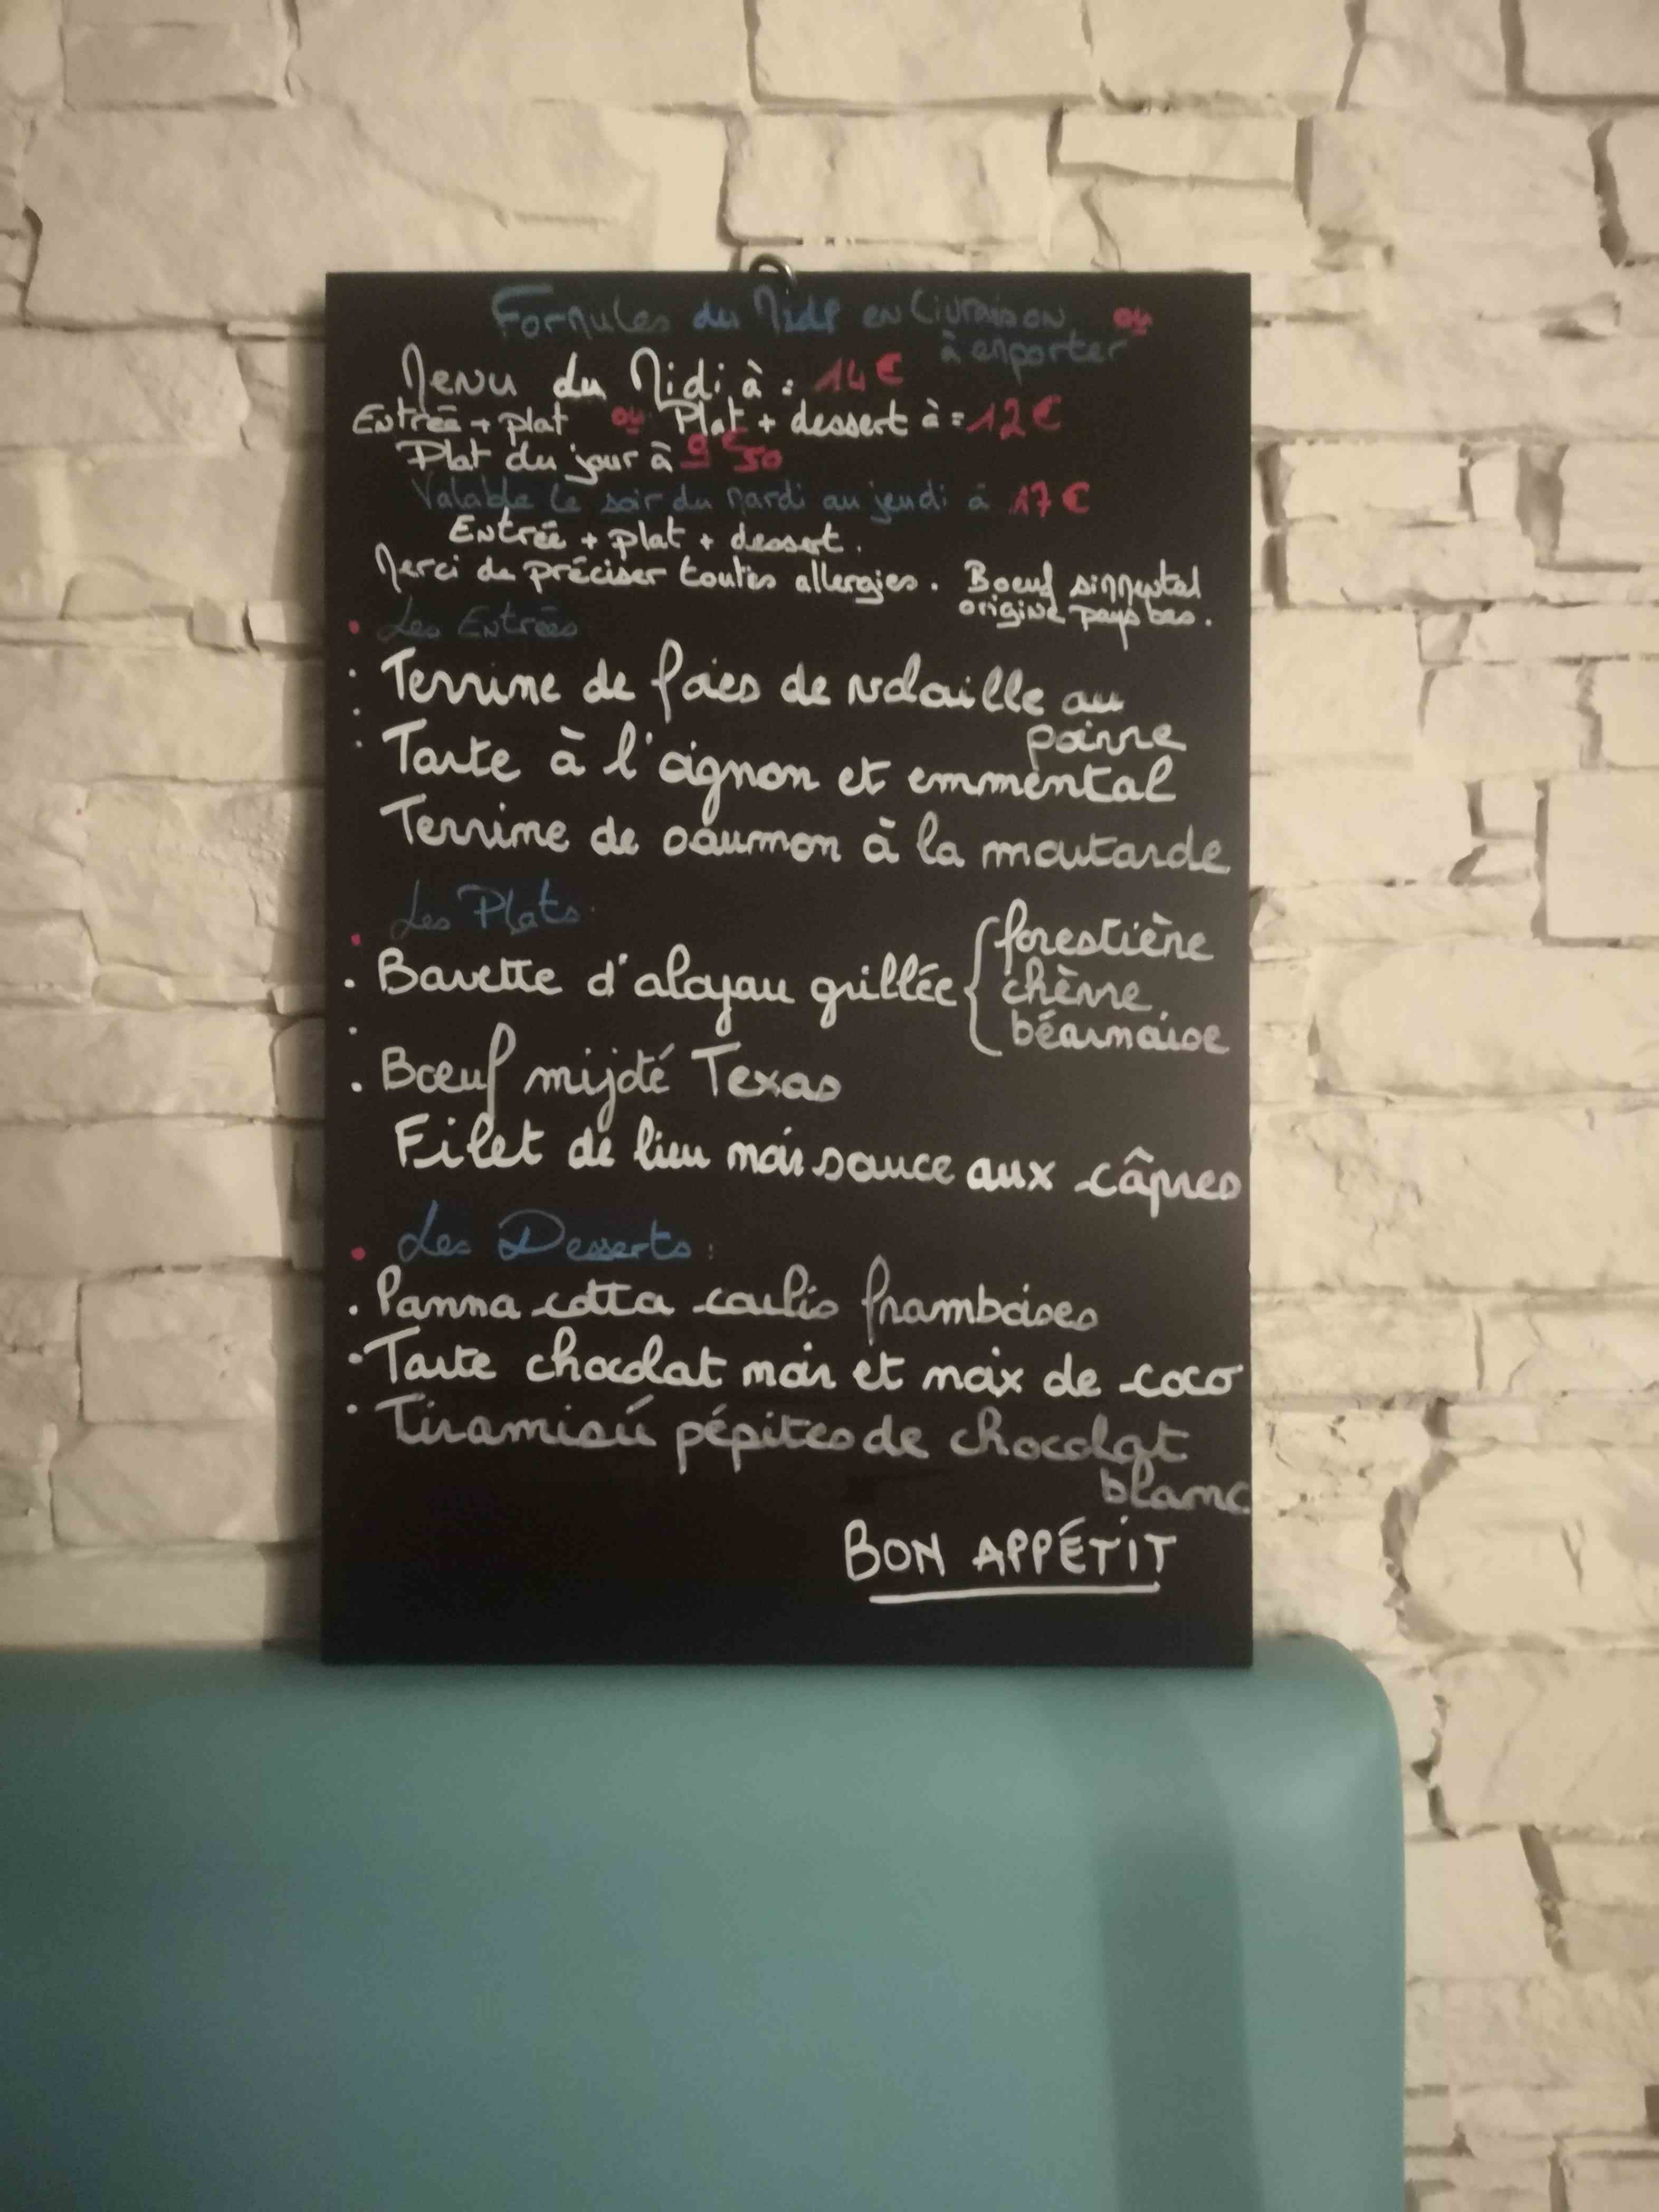 Formules du Midi en Livraison ou
à emporter
Menu du Midi à : 14€
Entrée + plat ou Plat + dessert à = 12€
Plat du jour à 9€50
Valable le soir du mardi au jeudi à 17€
Entrée + plat + dessert.
Merci de préciser toutes allergies. Boeuf simmental
origine pays bas.
• Les Entrées
Terrine de foies de volaille au
poivre
Tarte à l'oignon et emmental
Terrine de saumon à la moutarde
Les Plats
forestière
. Bavette d'aloyau grillée { chèvre
béarnaise
. Bœuf mijoté Texas
Filet de lieu noir sauce aux câpres
• Les Desserts :
. Panna cotta coulis framboises
. Tarte chocolat noir et noix de coco
. Tiramisú pépites de chocolat
blanc
BON APPÉTIT